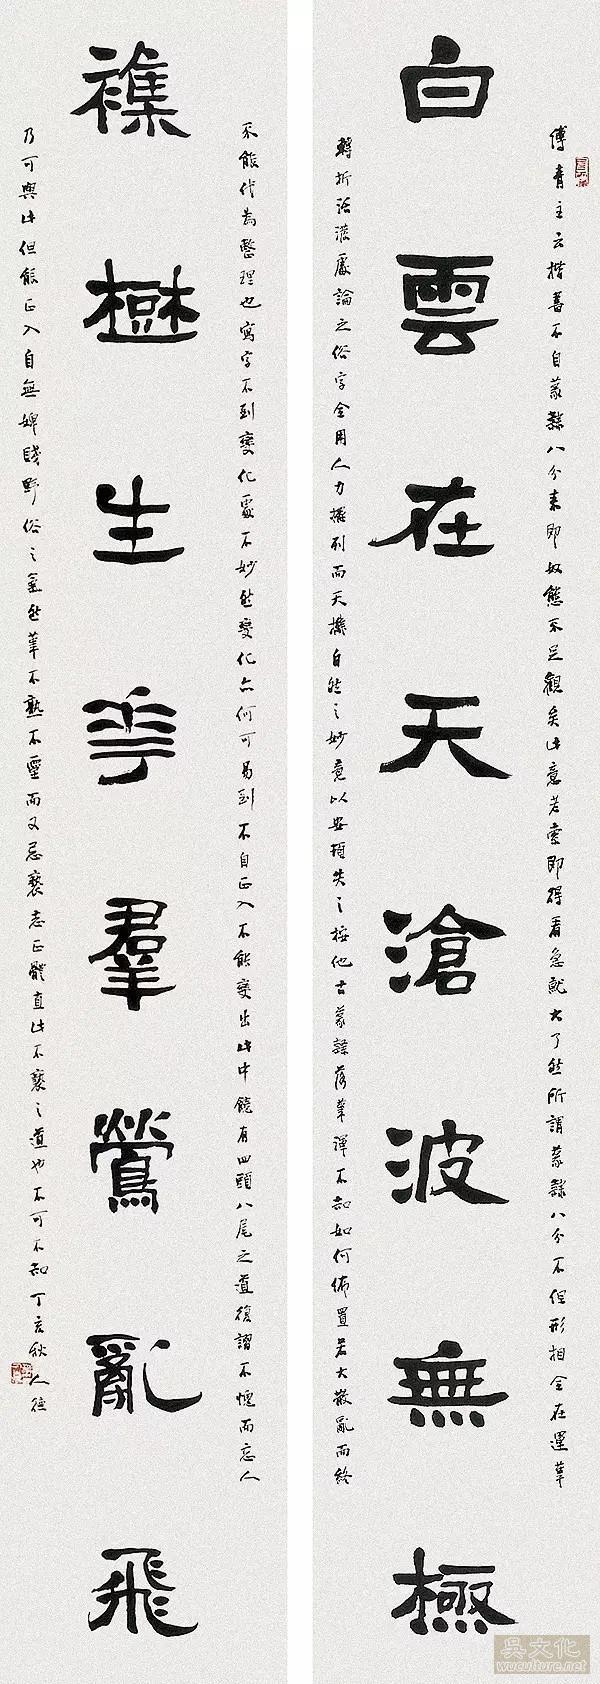 傅青主云楷書不自篆隸八分來即奴態不足觀矣此意老索即得看急就大了然所謂篆隸八分不但形相全在運筆
白雲在天滄波無極
轉折活潑處論之俗字全用人力擺列而天機自然之妙竟以安頓失之按他古篆隸落筆渾不知如何佈置若大散亂而終
不能代為整理也寫字不到變化處不妙然變化亦何可易到不自正入不能變出此中饒有四頭八尾之道復謂不愧而忘人
襍樹生華羣鶯亂飛
乃可與此但能正入自無婢賤野俗之氣然筆不熟不靈而又忌褻志正體直此不褻之道也不可不知丁亥秋人德
吳文化
wuculture.net